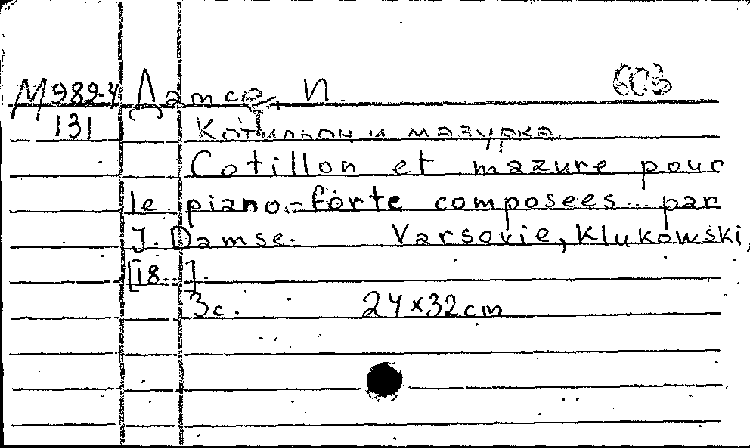 М 989-4 Дамсе, И. 603
131 Котильон и мазурка
Cotillon et mazure pour
le piano-forte composees par
J. Damse. Varsovie, Klukowski,
[18..].
3с. 24x32cm